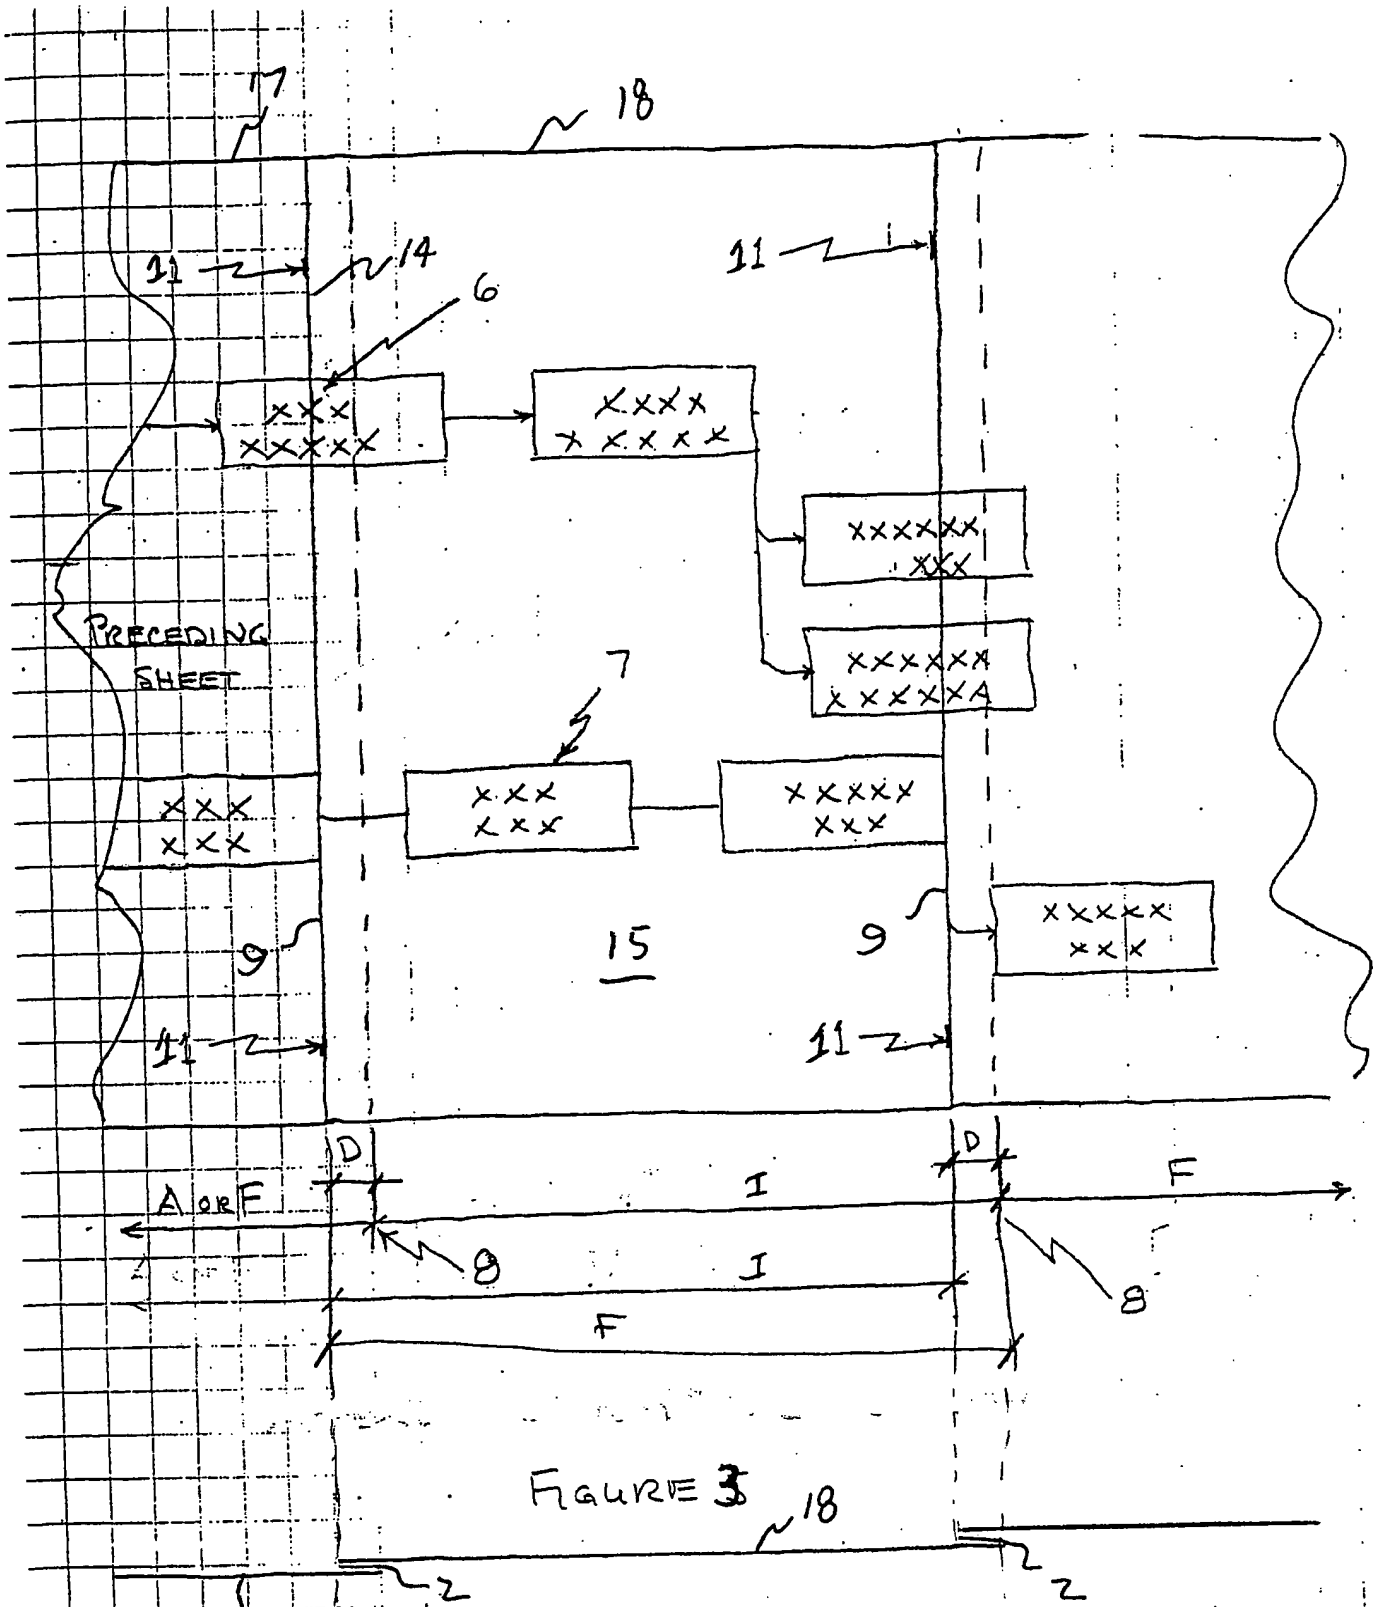 17
18
11
14
11
6
XXX
XXXXX
XXXX
XXXXX
XXXXXX
XXX
PRECEDING
SHEET
XXXXXX
XXXXXXA
7
XXX
XXX
XXX
XXX
XXXXX
XXX
XXXXX
XXX
9
15
9
11
11
D
D
A OR F
I
F
8
I
8
F
FIGURE 3
18
2
2